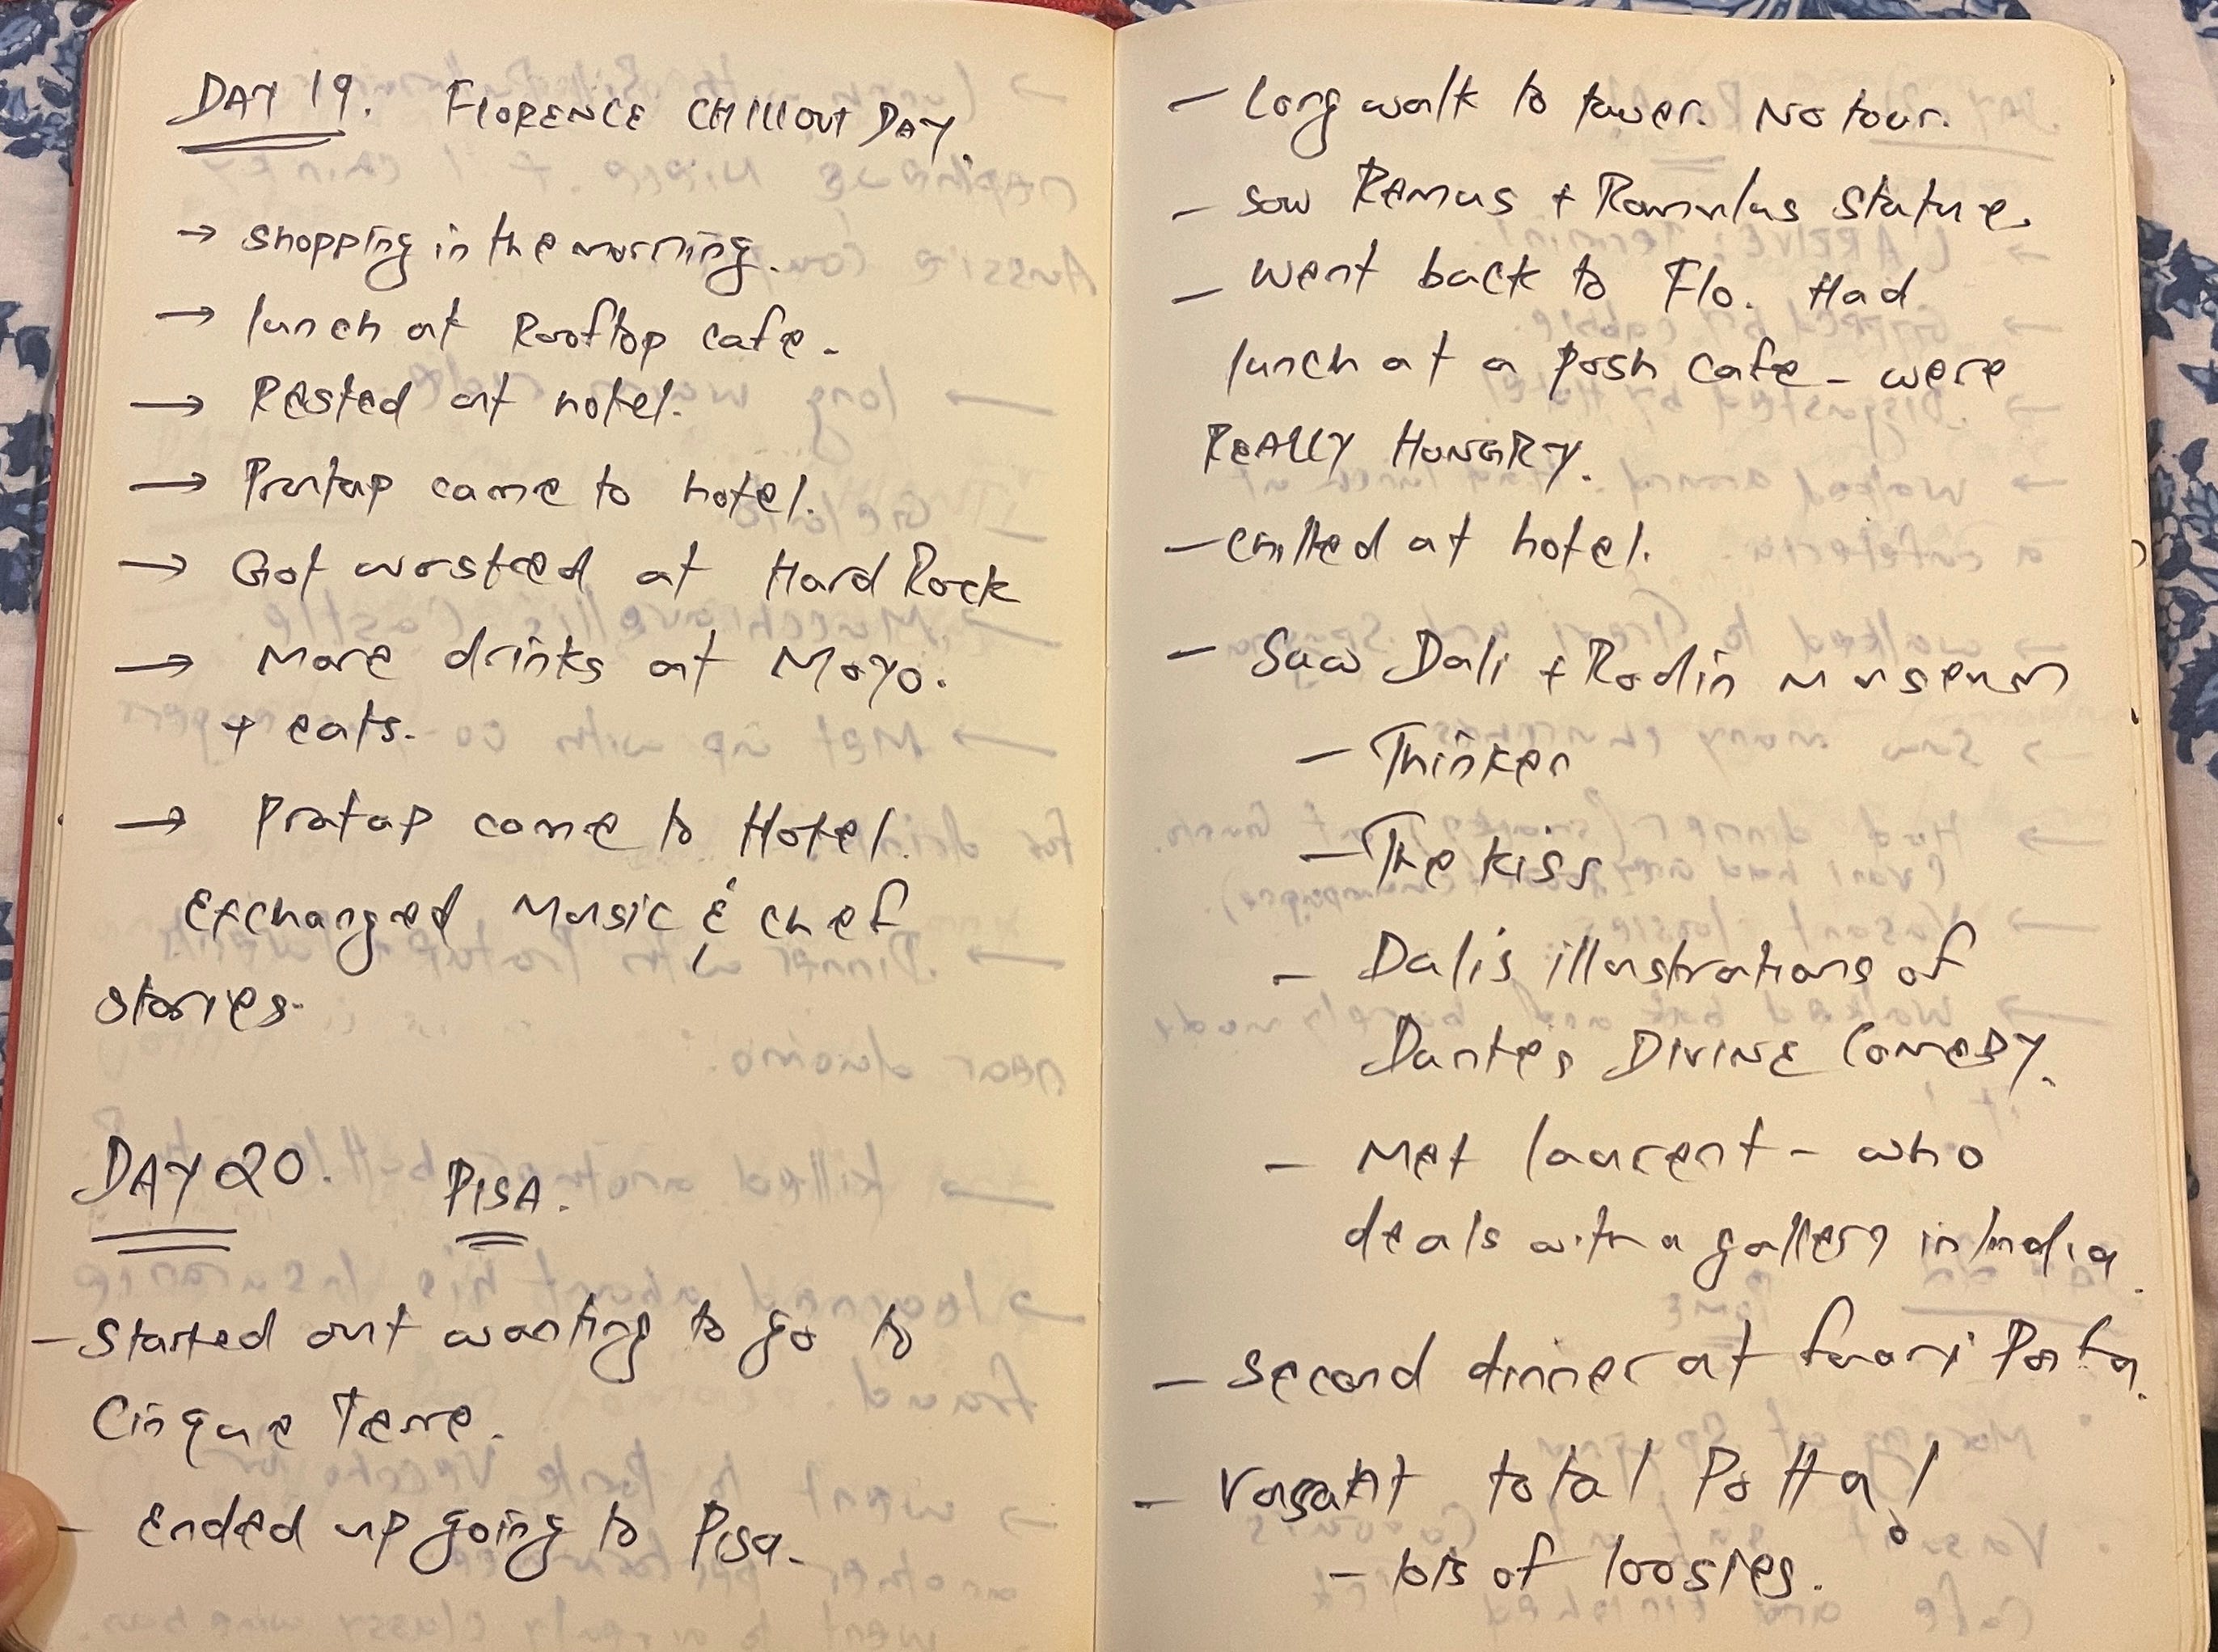 DAY 19. FLORENCE CHILLOUT DAY.
→ shopping in the morning.
→ lunch at Rooftop cafe.
→ Rested at hotel.
→ Pratap came to hotel.
→ Got worsted at Hard Rock
→ More drinks at Moyo.
+ eats.
→ Pratap came to Hotel.
Exchanged Music & chef
stories.
DAY 20. PISA.
- Started out wanting to go to
Cinque Terre.
- Ended up going to Pisa.
- Long walk to tower. No tour.
- saw Remus + Romulus statue.
- went back to Flo. Had
lunch at a posh cafe - were
REALLY HUNGRY.
- chilled at hotel.
- Saw Dali + Rodin museum
- Thinker
- The kiss
- Dali's illustrations of
Dante's DIVINE COMEDY.
- Met Laurent - who
deals with a gallery in India.
- second dinner at fuori Porta.
- Vasant total Potta!
- lots of loosies.